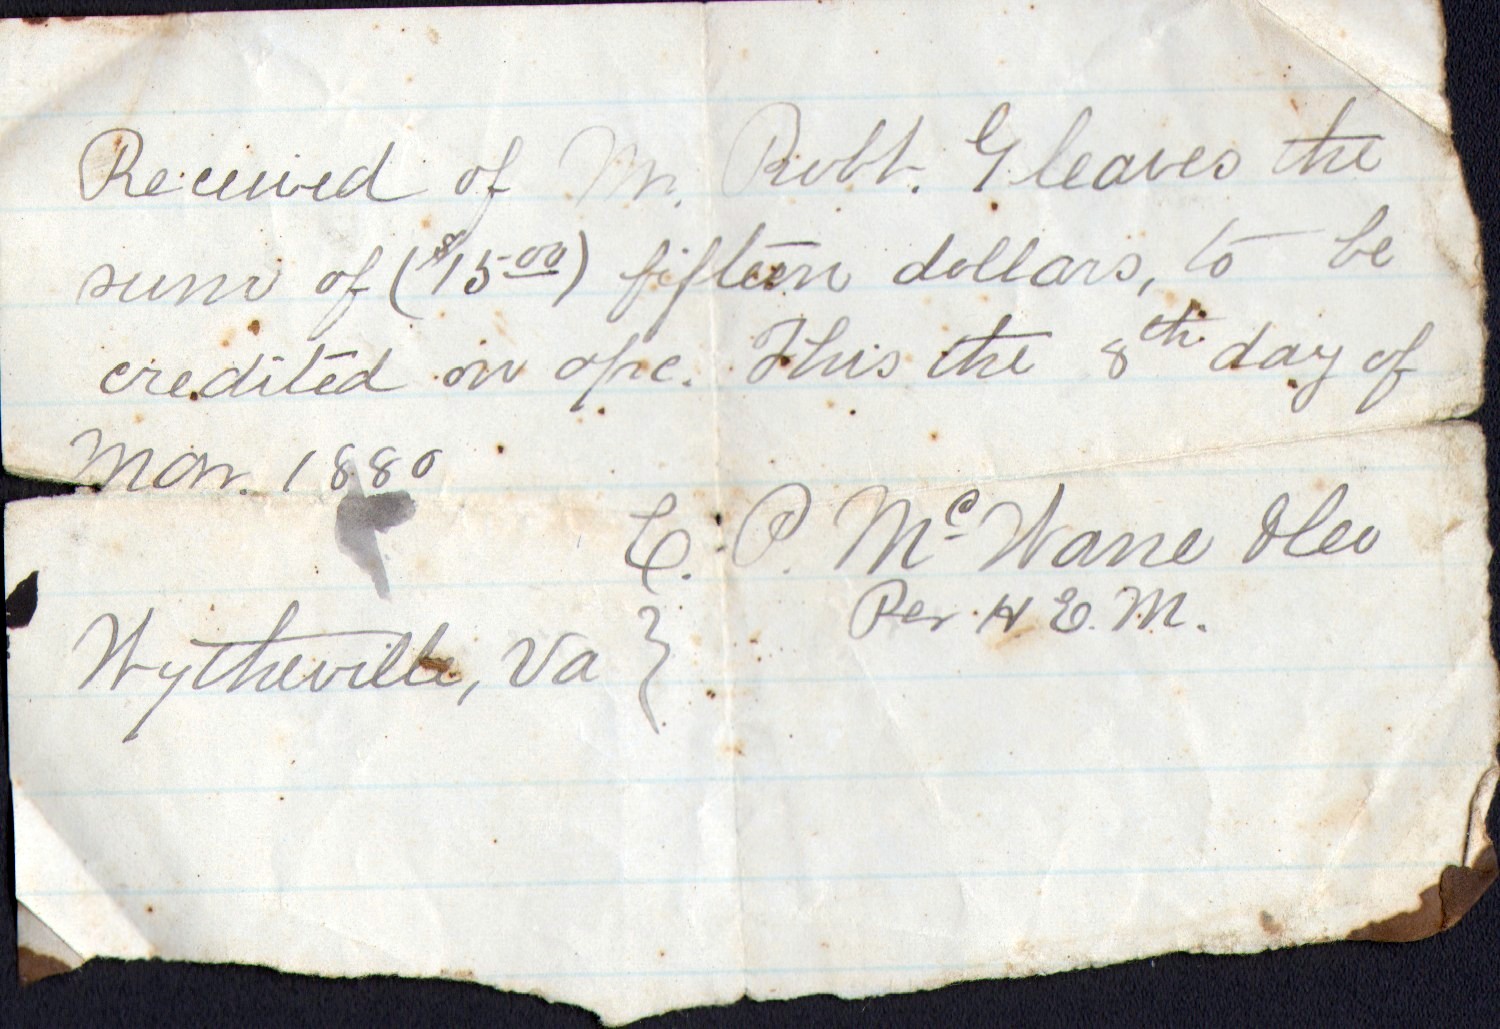 Received of Mr. Robt. Gleaves the
sum of ($15.00) fifteen dollars, to be
credited on a/c. This the 8th day of
Mar. 1880
C. P. McWane
Per H E. M.
Wytheville, Va }